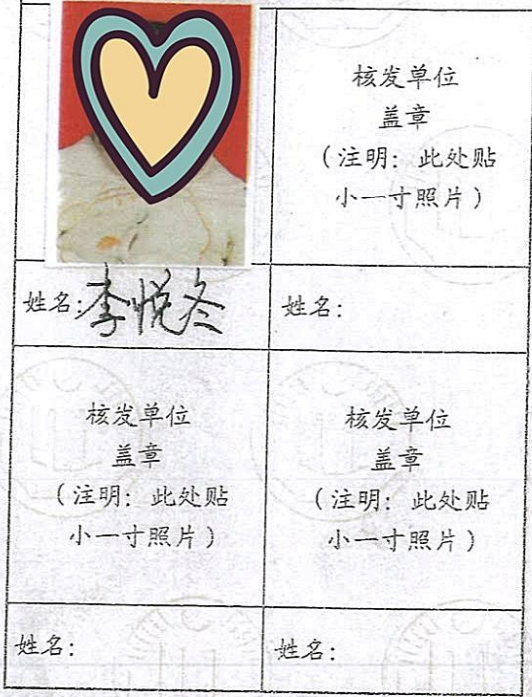 核发单位
盖章
（注明：此处贴
小一寸照片）
姓名：李悦冬
姓名：
核发单位
盖章
（注明：此处贴
小一寸照片）
核发单位
盖章
（注明：此处贴
小一寸照片）
姓名：
姓名：